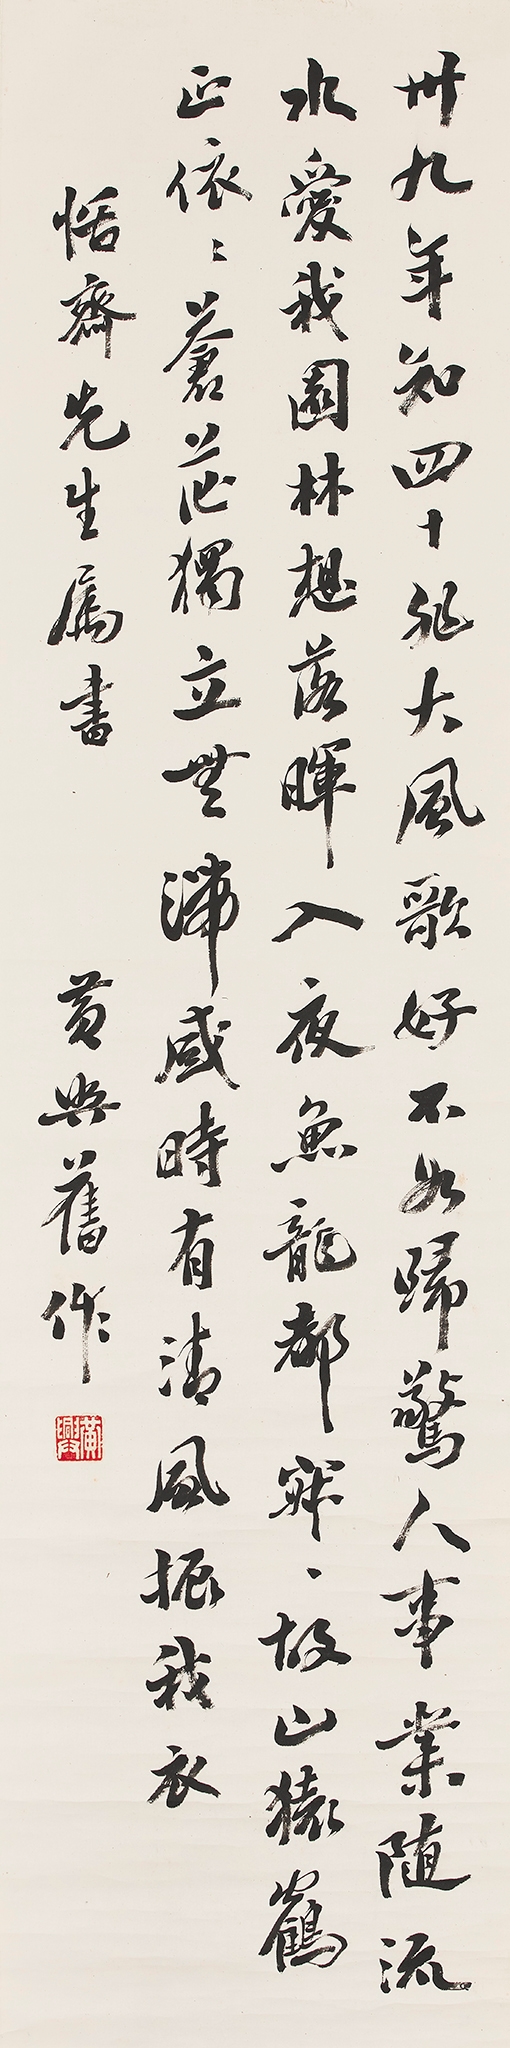 卅九年知四十非大風歌好不如歸驚人事業随流
水愛我園林想落暉入夜魚龍都寂寂故山猿鶴
正依依蒼茫獨立無滯感時有清風振我衣
恬齋先生属書
黃興舊作
黃興